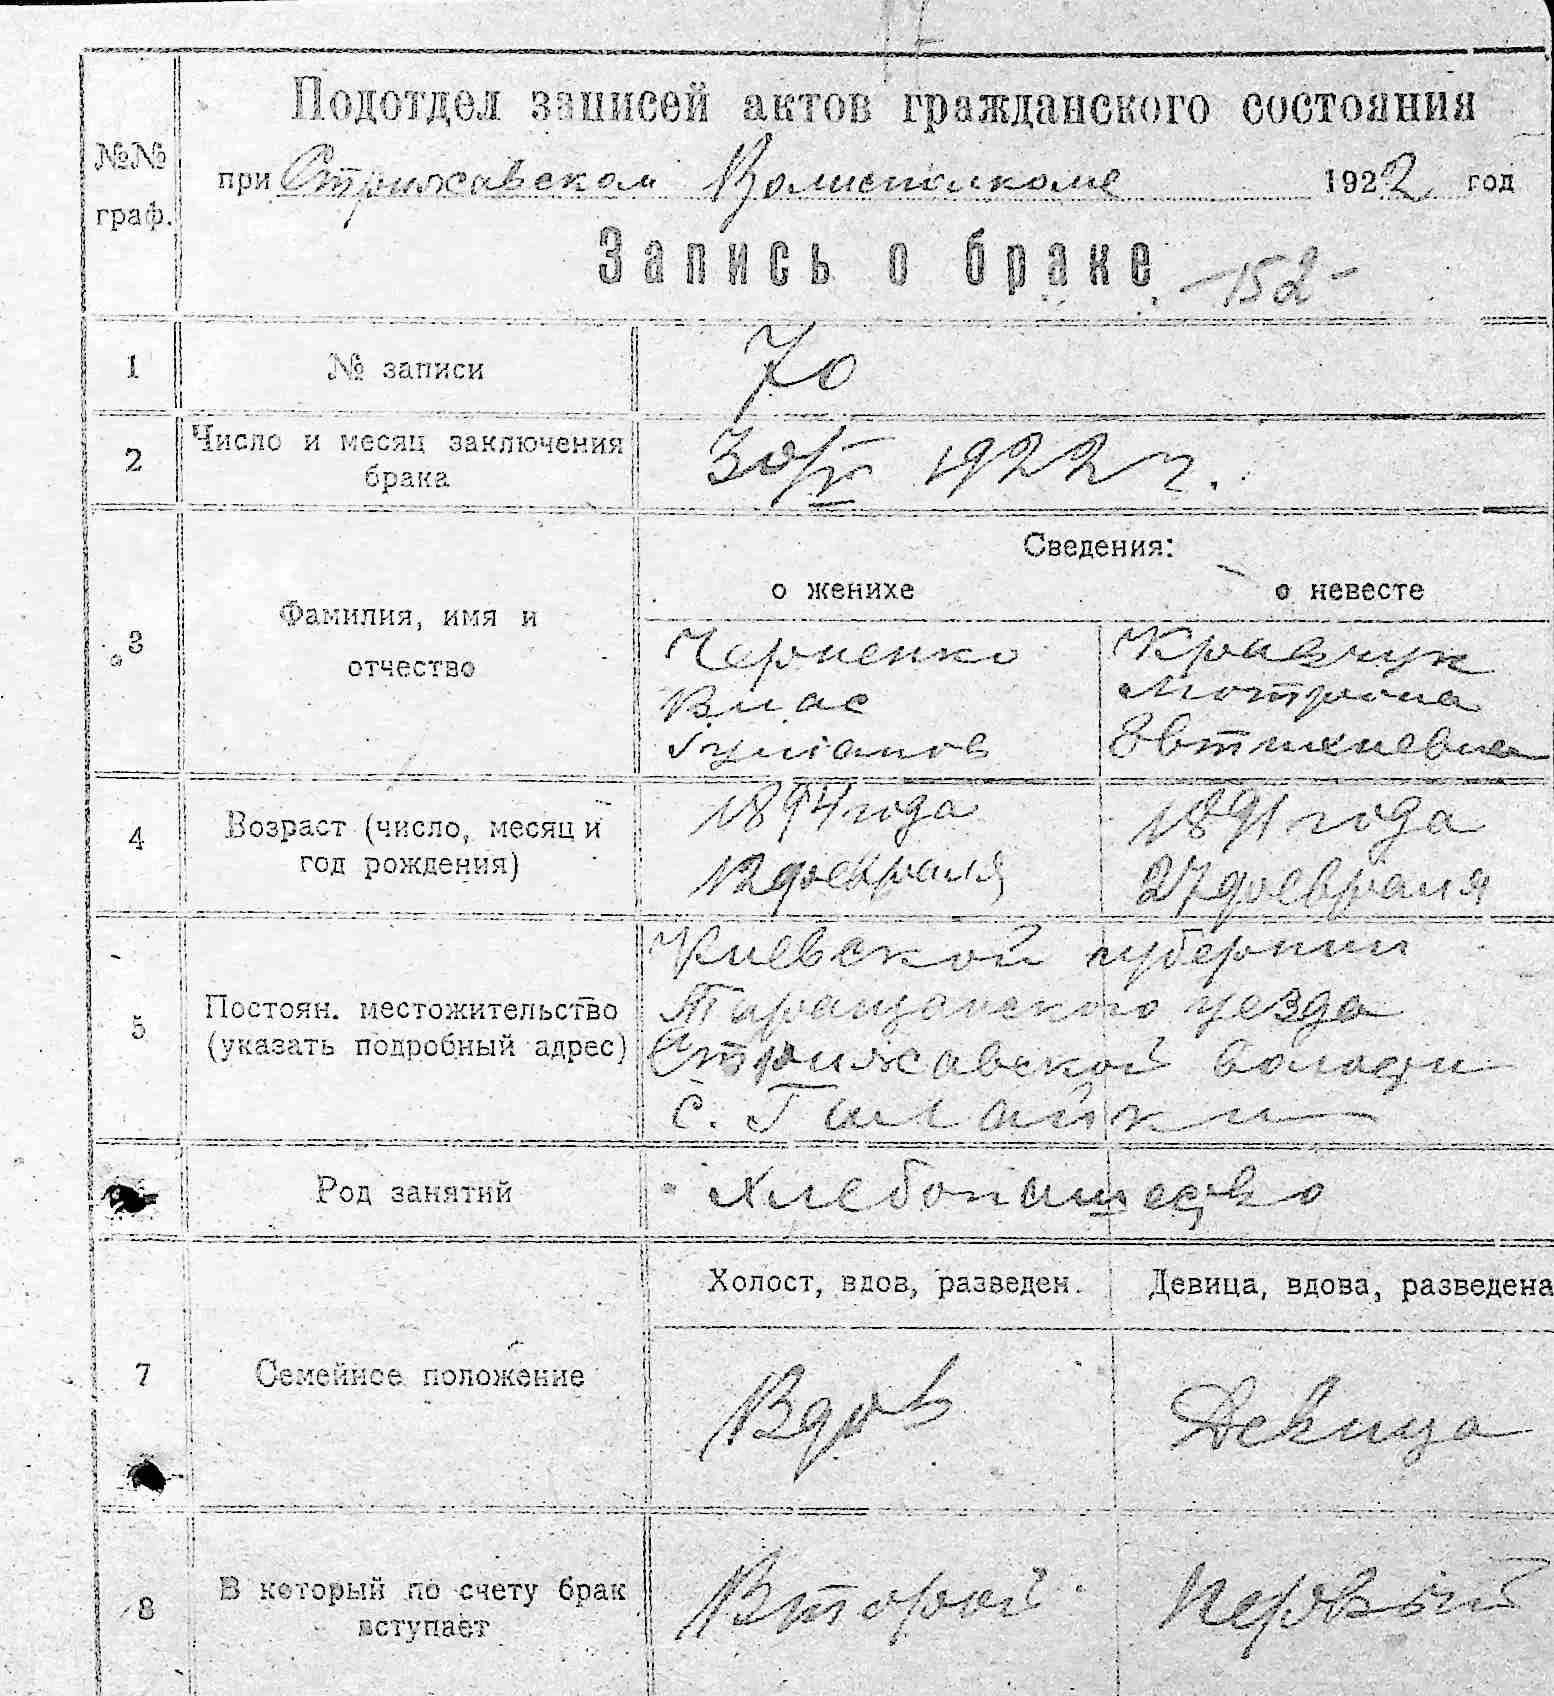 Подотдел записей актов гражданского состояния
№№ граф.
при Стрижавском Волисполкоме 1922 год
Запись о браке -152-
1 № записи 70
2 Число и месяц заключения брака 30/IV 1922 г.
Сведения:
о женихе о невесте
3 Фамилия, имя и отчество
Черненко Кравчук
Влас Мотрона
Евтихиевна
4 Возраст (число, месяц и год рождения)
1894 года 1891 года
12 февраля 27 февраля
5 Постоян. местожительство (указать подробный адрес)
Киевской губернии
Таращанского уезда
Стрижавской волости
с.
Род занятий Хлебопашество
Холост, вдов, разведен. Девица, вдова, разведена
7 Семейное положение Вдов Девица
8 В который по счету брак вступает Второй Первый